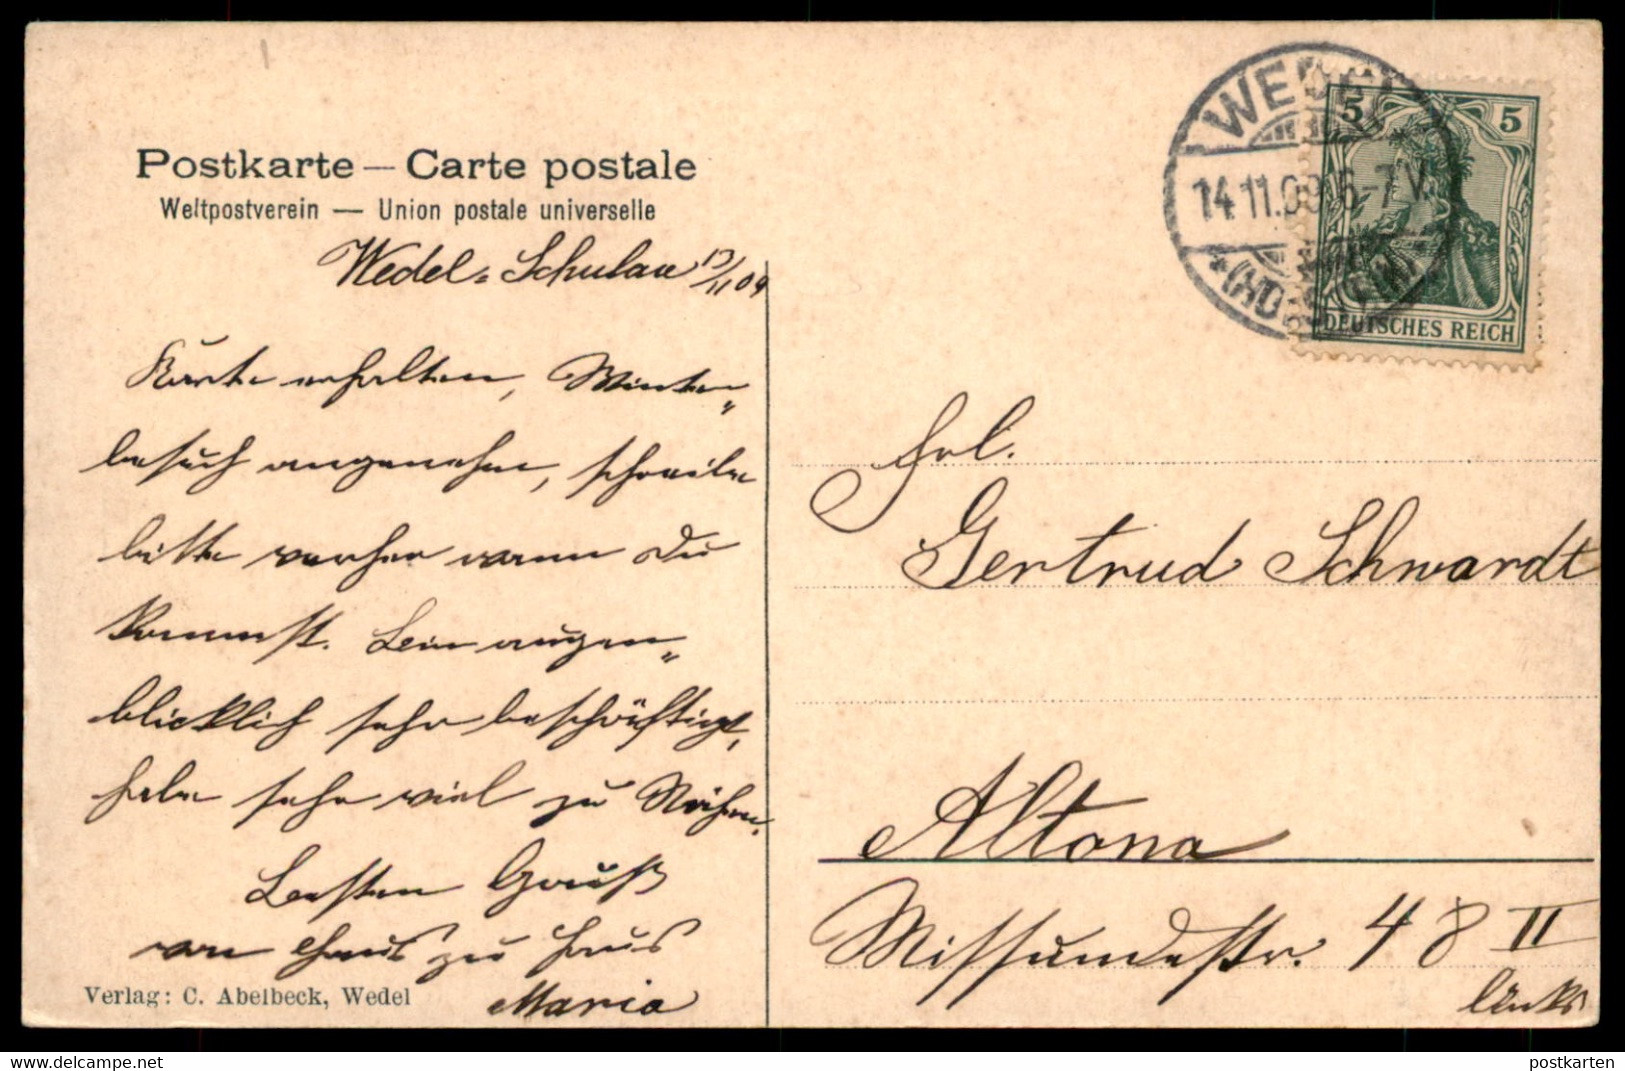 Postkarte — Carte postale
Weltpostverein — Union postale universelle
Wedel-Schulau 13/11 09
Karte erhalten, Winter-
besuch angenehm, schreibe
bitte vorher wann Du
kommst. Bin augen-
blicklich sehr beschäftigt,
habe sehr viel zu Nähen.
Besten Gruß
von Haus zu Haus
Maria
Verlag: C. Abelbeck, Wedel
WEDEL
14.11.09. 6-7 V.
5 5
DEUTSCHES REICH
Frl.
Gertrud Schwardt
Altona
Missundestr. 48 II
links
www.delcampe.net
postkarten